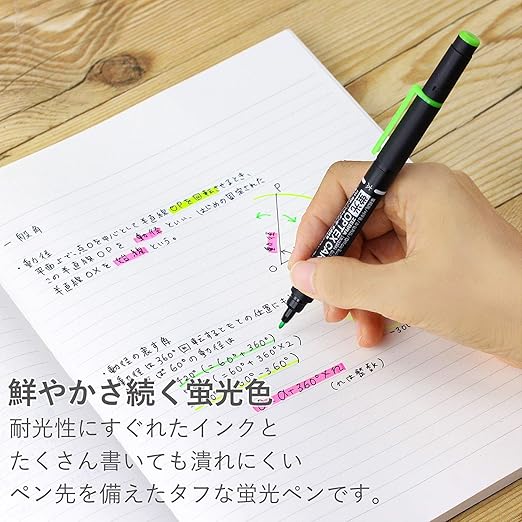 一般角
・動径
平面上で、点Oを中心として半直線OPを回転させるとき、
この半直線OPを動径といい、はじめの固定された
半直線OXを始線という。
P
動径
O
・動径の表す角
動径は360°回転するともとの位置に
60°の動径は
(=60°+360°)
(=60°+360°×2)
-300
α+360°×n
(nは整数)
太
OPTEX CA
鮮やかさ続く蛍光色
耐光性にすぐれたインクと
たくさん書いても潰れにくい
ペン先を備えたタフな蛍光ペンです。